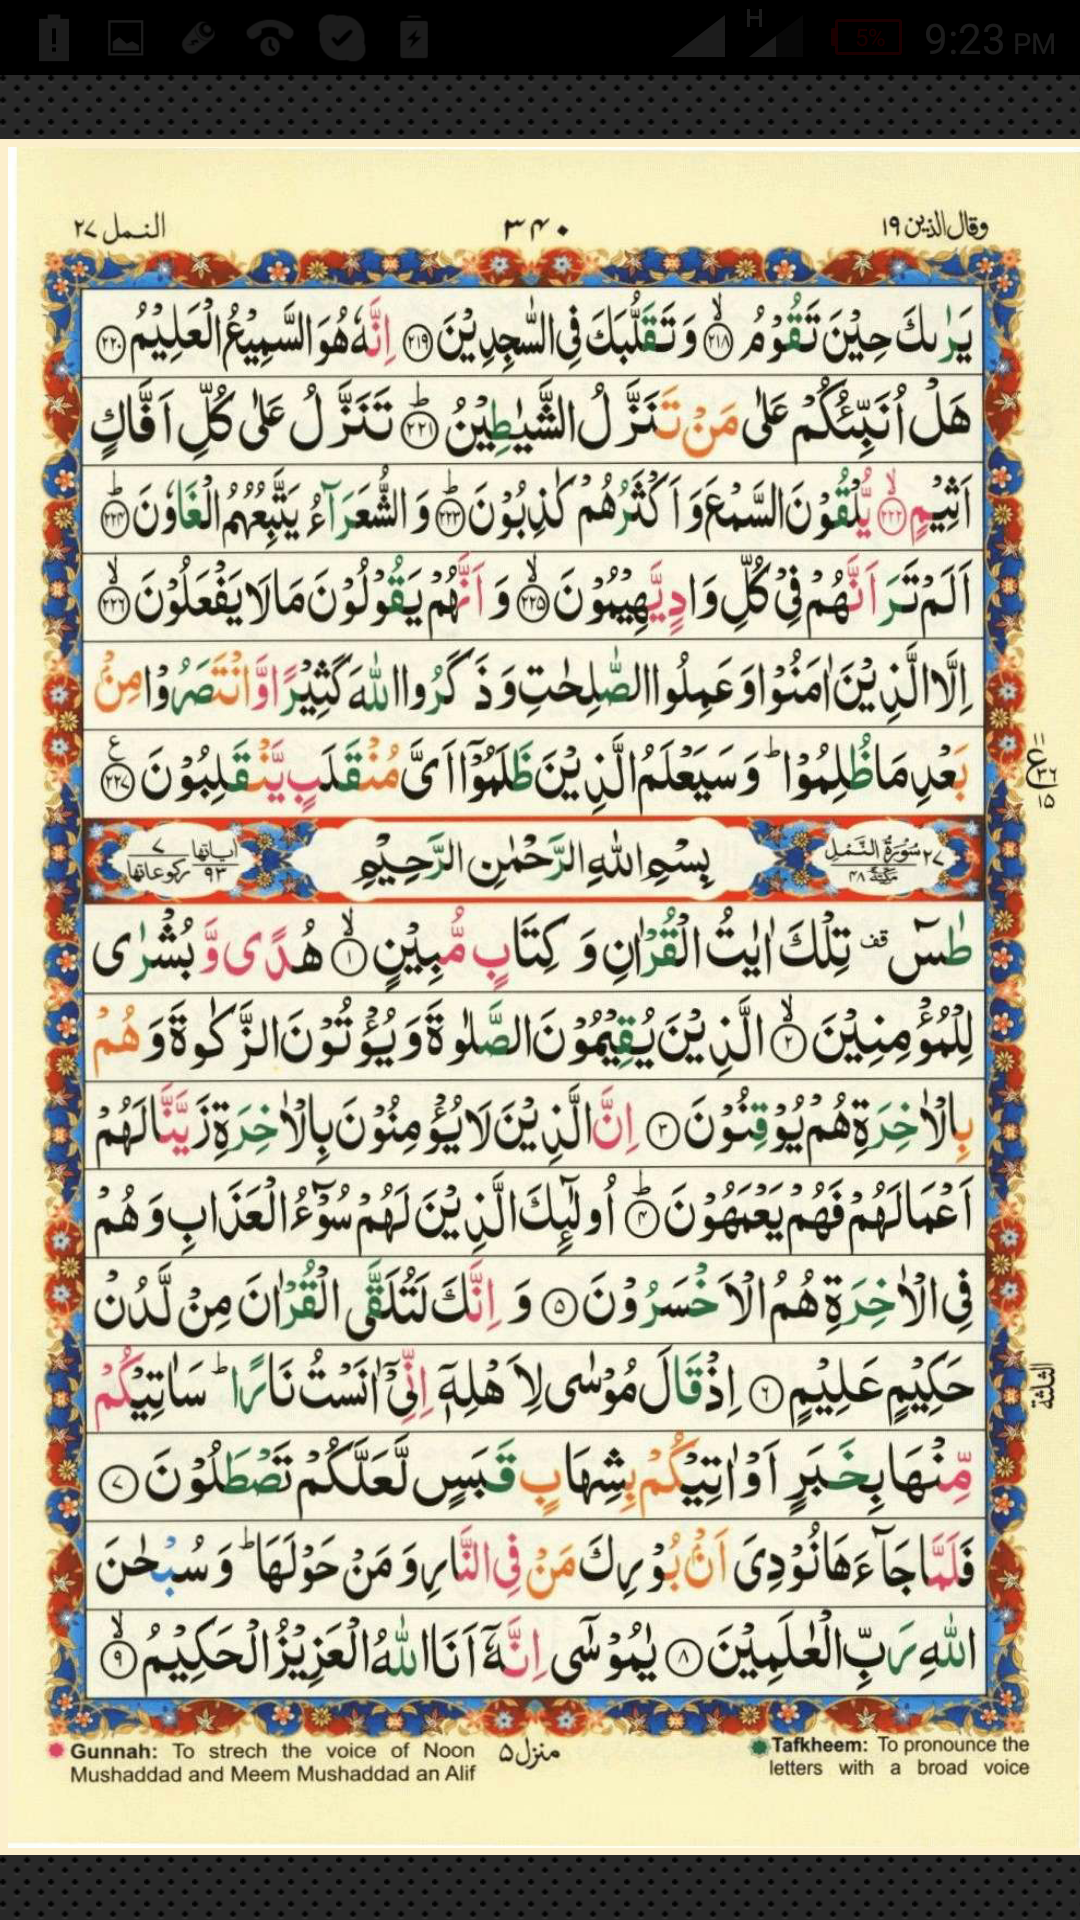 9:23 PM
H
5%
وقال الذین ١٩
٣۴٠
النمل ٢٧
يَرٰىكَ حِيْنَ تَقُوْمُ ۙ﴿٢١٨﴾ وَ تَقَلُّبَكَ فِى السّٰجِدِيْنَ ﴿٢١٩﴾ اِنَّهٗ هُوَ السَّمِيْعُ الْعَلِيْمُ ﴿٢٢٠﴾
هَلْ اُنَبِّئُكُمْ عَلٰى مَنْ تَنَزَّلُ الشَّيٰطِيْنُ ؕ﴿٢٢١﴾ تَنَزَّلُ عَلٰى كُلِّ اَفَّاكٍ
اَثِيْمٍ ۙ﴿٢٢٢﴾ يُّلْقُوْنَ السَّمْعَ وَ اَكْثَرُهُمْ كٰذِبُوْنَ ؕ﴿٢٢٣﴾ وَ الشُّعَرَآءُ يَتَّبِعُهُمُ الْغَاوٗنَ ؕ﴿٢٢۴﴾
اَلَمْ تَرَ اَنَّهُمْ فِىْ كُلِّ وَادٍ يَّهِيْمُوْنَ ۙ﴿٢٢۵﴾ وَ اَنَّهُمْ يَقُوْلُوْنَ مَا لَا يَفْعَلُوْنَ ۙ﴿٢٢٦﴾
اِلَّا الَّذِيْنَ اٰمَنُوْا وَ عَمِلُوا الصّٰلِحٰتِ وَ ذَكَرُوا اللّٰهَ كَثِيْرًا وَّ انْتَصَرُوْا مِنْۢ
بَعْدِ مَا ظُلِمُوْا ؕ وَ سَيَعْلَمُ الَّذِيْنَ ظَلَمُوْٓا اَىَّ مُنْقَلَبٍ يَّنْقَلِبُوْنَ ﴿٢٢٧﴾ ع
١١ ع ٣٦ ١۵
٢٧ سُوْرَةُ النَّمْلِ مَكِّيَّةٌ ۴٨
بِسْمِ اللّٰهِ الرَّحْمٰنِ الرَّحِيْمِ
اٰیاتها ٩٣ رکوعاتها ٧
طٰسٓ قف تِلْكَ اٰيٰتُ الْقُرْاٰنِ وَ كِتَابٍ مُّبِيْنٍ ۙ﴿١﴾ هُدًى وَّ بُشْرٰى
لِلْمُؤْمِنِيْنَ ۙ﴿٢﴾ الَّذِيْنَ يُقِيْمُوْنَ الصَّلٰوةَ وَ يُؤْتُوْنَ الزَّكٰوةَ وَ هُمْ
بِالْاٰخِرَةِ هُمْ يُوْقِنُوْنَ ﴿٣﴾ اِنَّ الَّذِيْنَ لَا يُؤْمِنُوْنَ بِالْاٰخِرَةِ زَيَّنَّا لَهُمْ
اَعْمَالَهُمْ فَهُمْ يَعْمَهُوْنَ ؕ﴿۴﴾ اُولٰٓئِكَ الَّذِيْنَ لَهُمْ سُوْٓءُ الْعَذَابِ وَ هُمْ
فِى الْاٰخِرَةِ هُمُ الْاَخْسَرُوْنَ ﴿۵﴾ وَ اِنَّكَ لَتُلَقَّى الْقُرْاٰنَ مِنْ لَّدُنْ
حَكِيْمٍ عَلِيْمٍ ﴿٦﴾ اِذْ قَالَ مُوْسٰى لِاَهْلِهٖٓ اِنِّىْٓ اٰنَسْتُ نَارًا ؕ سَاٰتِيْكُمْ
الثلثة
مِّنْهَا بِخَبَرٍ اَوْ اٰتِيْكُمْ بِشِهَابٍ قَبَسٍ لَّعَلَّكُمْ تَصْطَلُوْنَ ﴿٧﴾
فَلَمَّا جَآءَهَا نُوْدِىَ اَنْۢ بُوْرِكَ مَنْ فِى النَّارِ وَ مَنْ حَوْلَهَا ؕ وَ سُبْحٰنَ
اللّٰهِ رَبِّ الْعٰلَمِيْنَ ﴿٨﴾ يٰمُوْسٰٓى اِنَّهٗٓ اَنَا اللّٰهُ الْعَزِيْزُ الْحَكِيْمُ ۙ﴿٩﴾
Gunnah: To strech the voice of Noon
Mushaddad and Meem Mushaddad an Alif
منزل ۵
Tafkheem: To pronounce the
letters with a broad voice